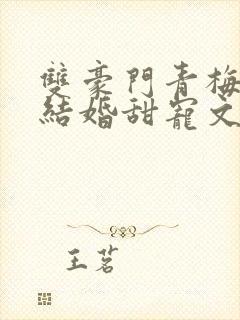 雙豪門青梅
結婚甜寵文
王茗